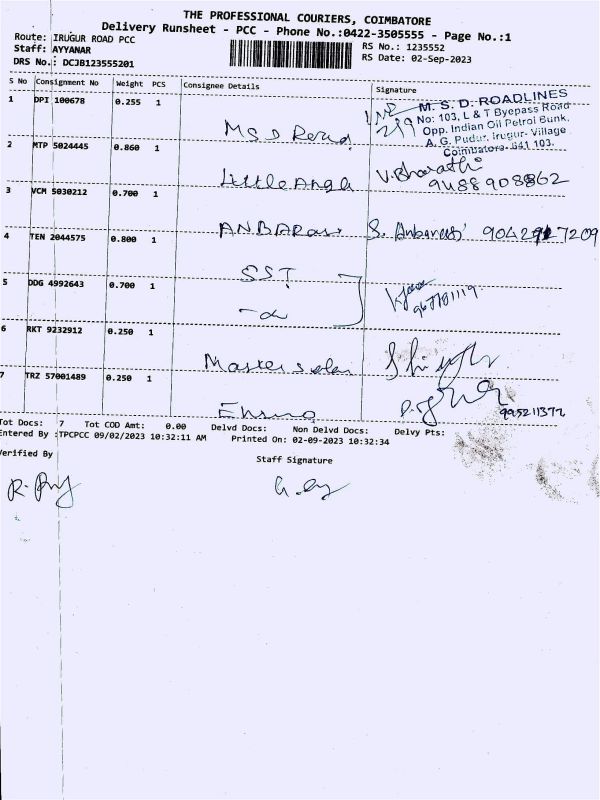 THE PROFESSIONAL COURIERS, COIMBATORE
Delivery Runsheet - PCC - Phone No.:0422-3505555 - Page No.:1
Route: IRUGUR ROAD PCC
Staff: AYYANAR
DRS No.: DCJB123555201
RS No.: 1235552
RS Date: 02-Sep-2023
S No Consignment No Weight PCS Consignee Details Signature
1 DPI 100678 0.255 1 MSD Road
M. S. D. ROADLINES
No: 103, L & T Byepass Road
Opp. Indian Oil Petrol Bunk,
A. G. Pudur, Irugur- Village
Coimbatore- 641 103.
2 MTP 5024445 0.860 1 Little Angle V. Bharathi
9488908862
3 VCM 5030212 0.700 1 ANBARasi S. Anbarasi
4 TEN 2044575 0.800 1 SST
5 DDG 4992643 0.700 1 -do
6 RKT 9232912 0.250 1 Master
7 TRZ 57001489 0.250 1
Tot Docs: 7 Tot COD Amt: 0.00 Delvd Docs: Non Delvd Docs: Delvy Pts:
Entered By :TPCPCC 09/02/2023 10:32:11 AM Printed On: 02-09-2023 10:32:34
Verified By Staff Signature